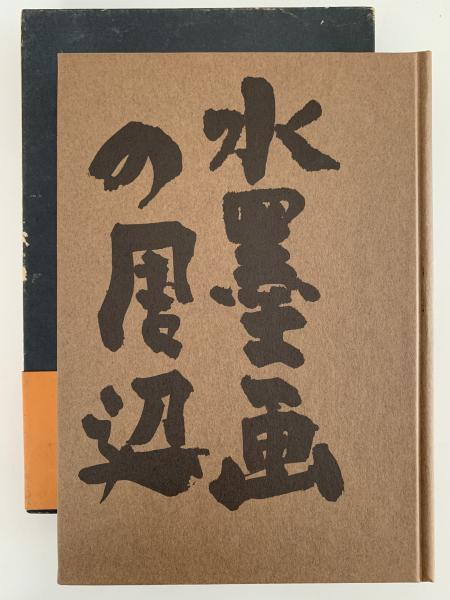 水墨画
の周辺